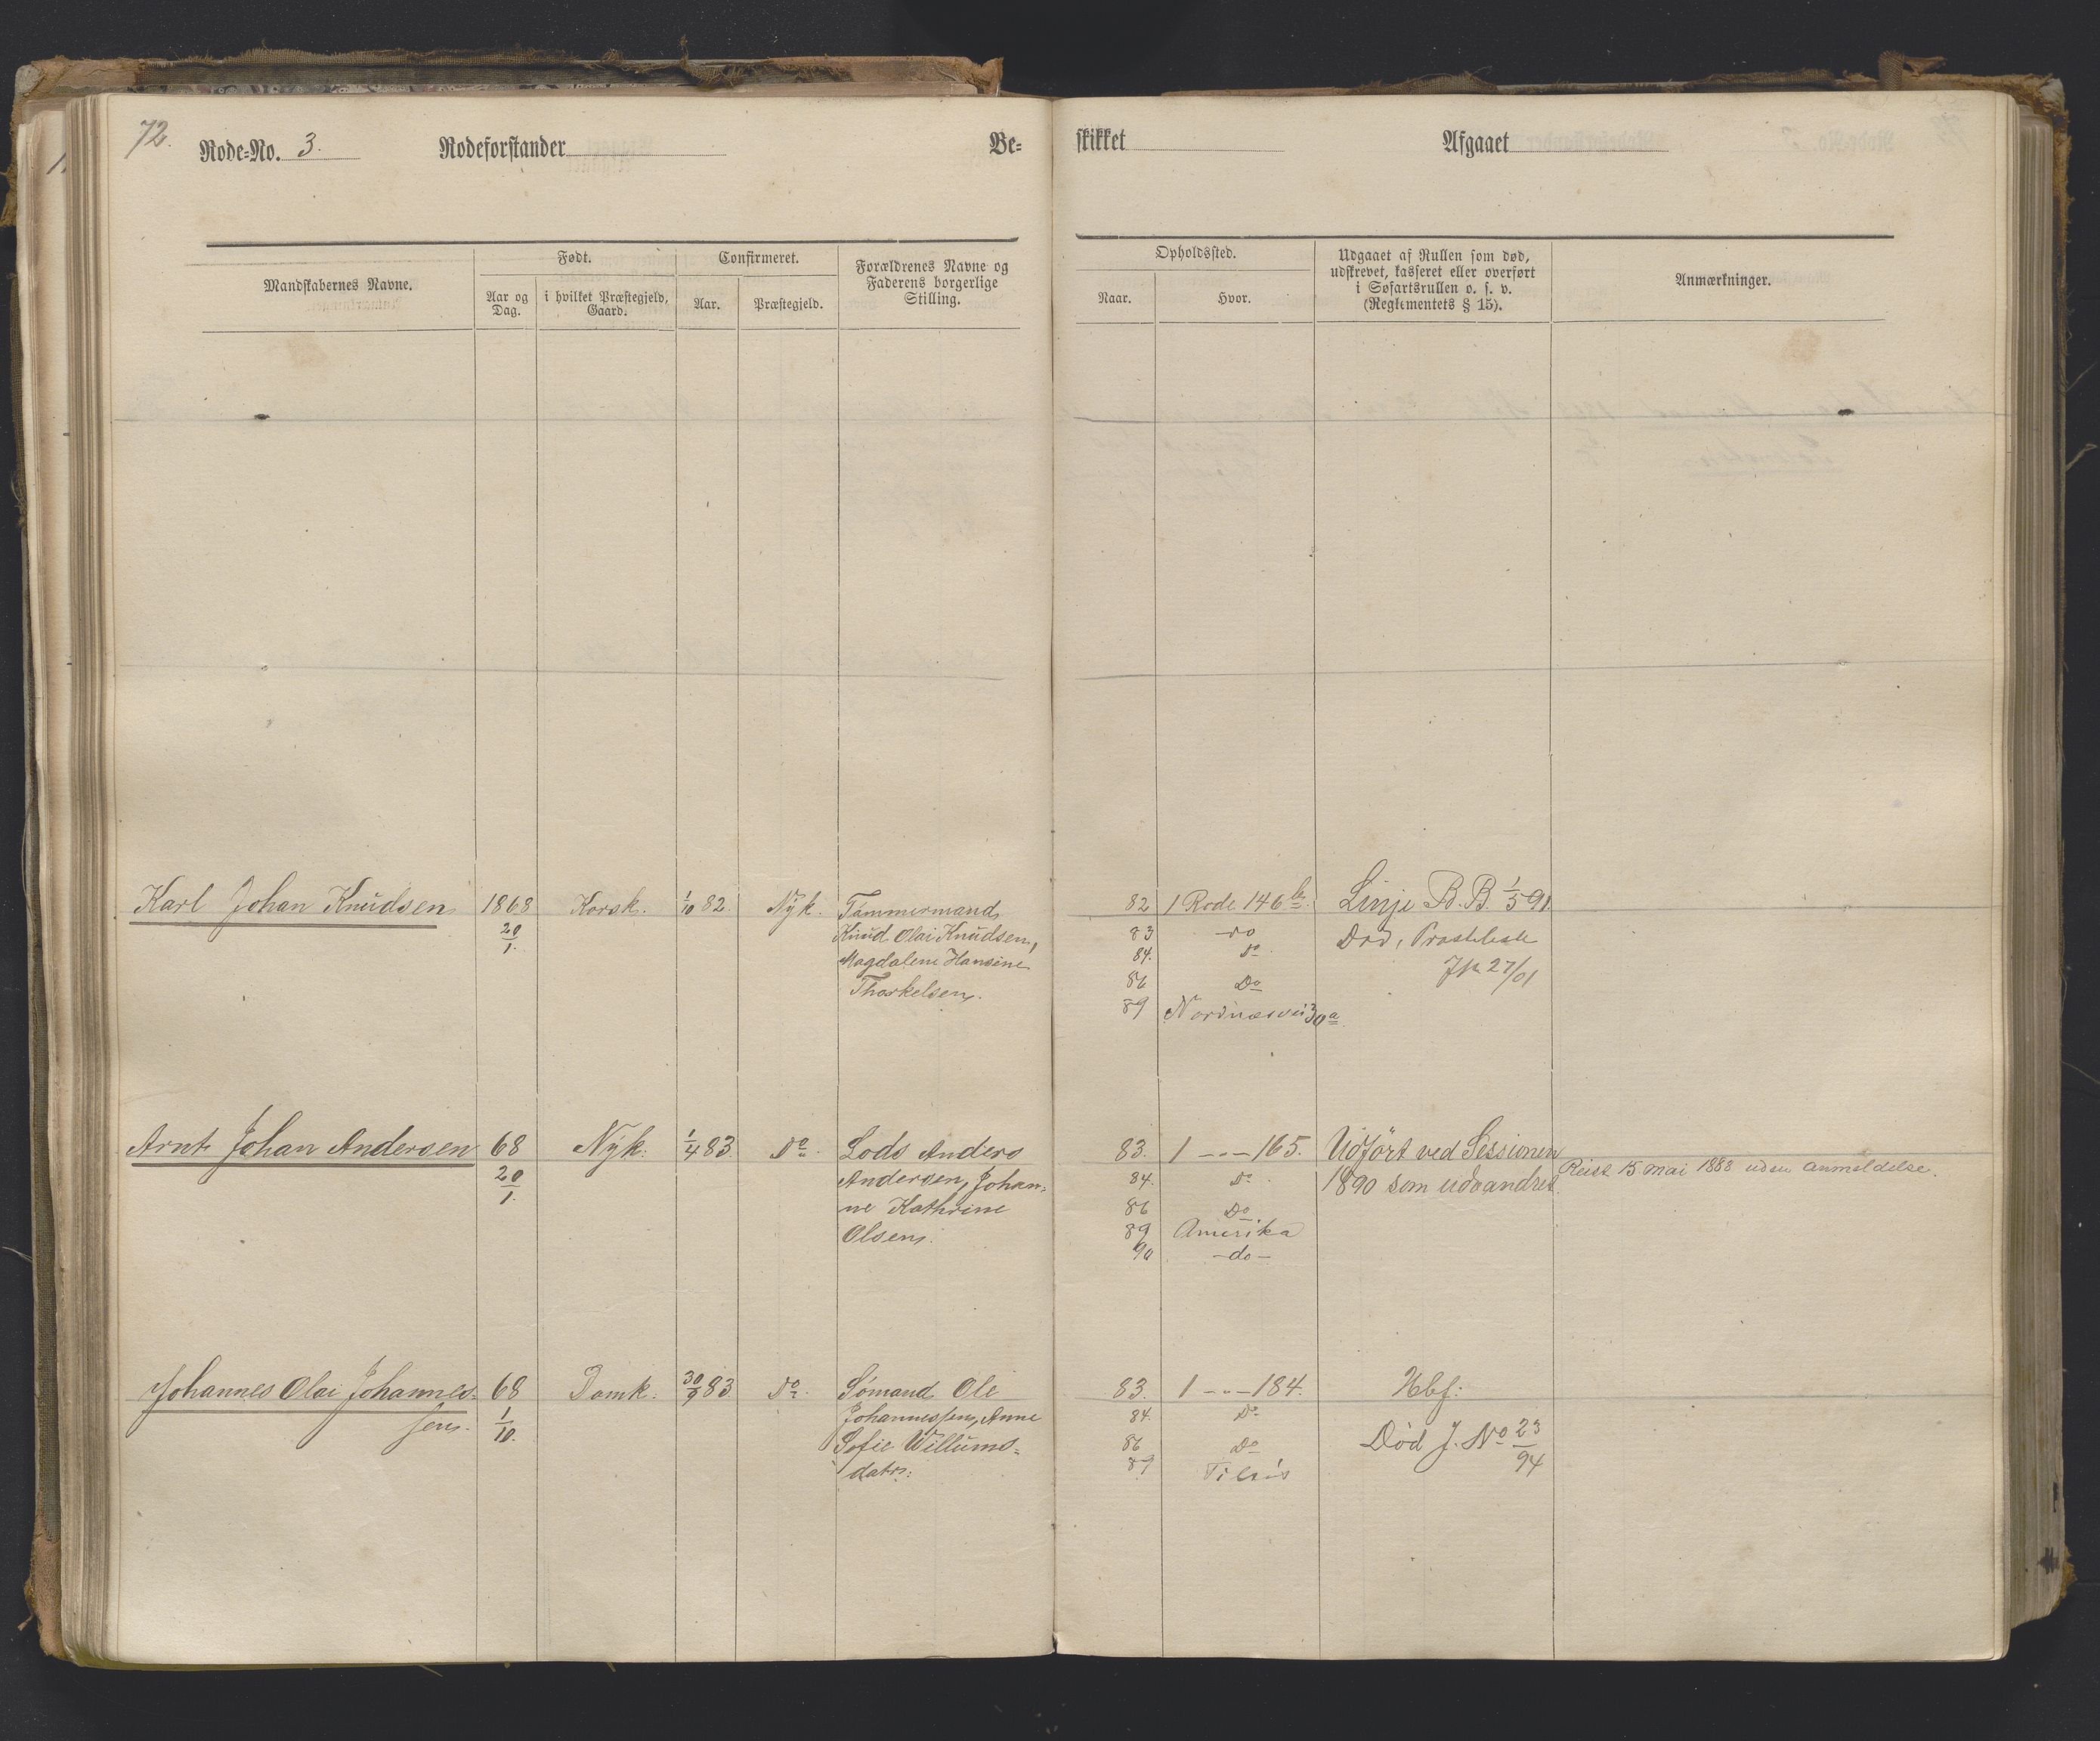 72.
Rode=No. 3. Rodeforstander Be=
skikket Afgaaet
Mandskabernes Navne.
Født.
Aar og Dag.
i hvilket Præstegjeld, Gaard.
Confirmeret.
Aar.
Præstegjeld.
Forældrenes Navne og
Faderens borgerlige
Stilling.
Opholdssted.
Naar.
Hvor.
Udgaaet af Rullen som død,
udskrevet, kasseret eller overført
i Søfartsrullen o. s. v.
(Reglementets § 15).
Anmærkninger.
Karl Johan Knudsen 1868 Korsk. 1/10 82. Nyk. Tømmermand
20/1. Knud Olai Knudsen,
Magdalene Hansine
Thorkelsen.
82 1 Rode 146 b. Linje B.B. 1/5 91.
83 do Død,
84. Do. 27/01
86 Do
89 Nordnæsvei 30 a
Arnt Johan Andersen 68 Nyk. 1/4 83. Do. Lods Anders
20/1. Andersen, Johan=
ne Kathrine
Olsen.
83. 1 -„- 165. Udført ved Sessionen
84. Do. 1890 som udvandret. Reist 15 mai 1888 uden anmeldelse.
86 Do
89 Amerika
90 -do-
Johannes Olai Johannes= 68 Domk. 30/9 83. Do. Sømand Ole
sen. 1/10. Johannessen, Anne
Sofie Willums=
datr.
83. 1 -„- 184.
84. Do
86 Do Død J. No 23/94
89 Tilsiøs